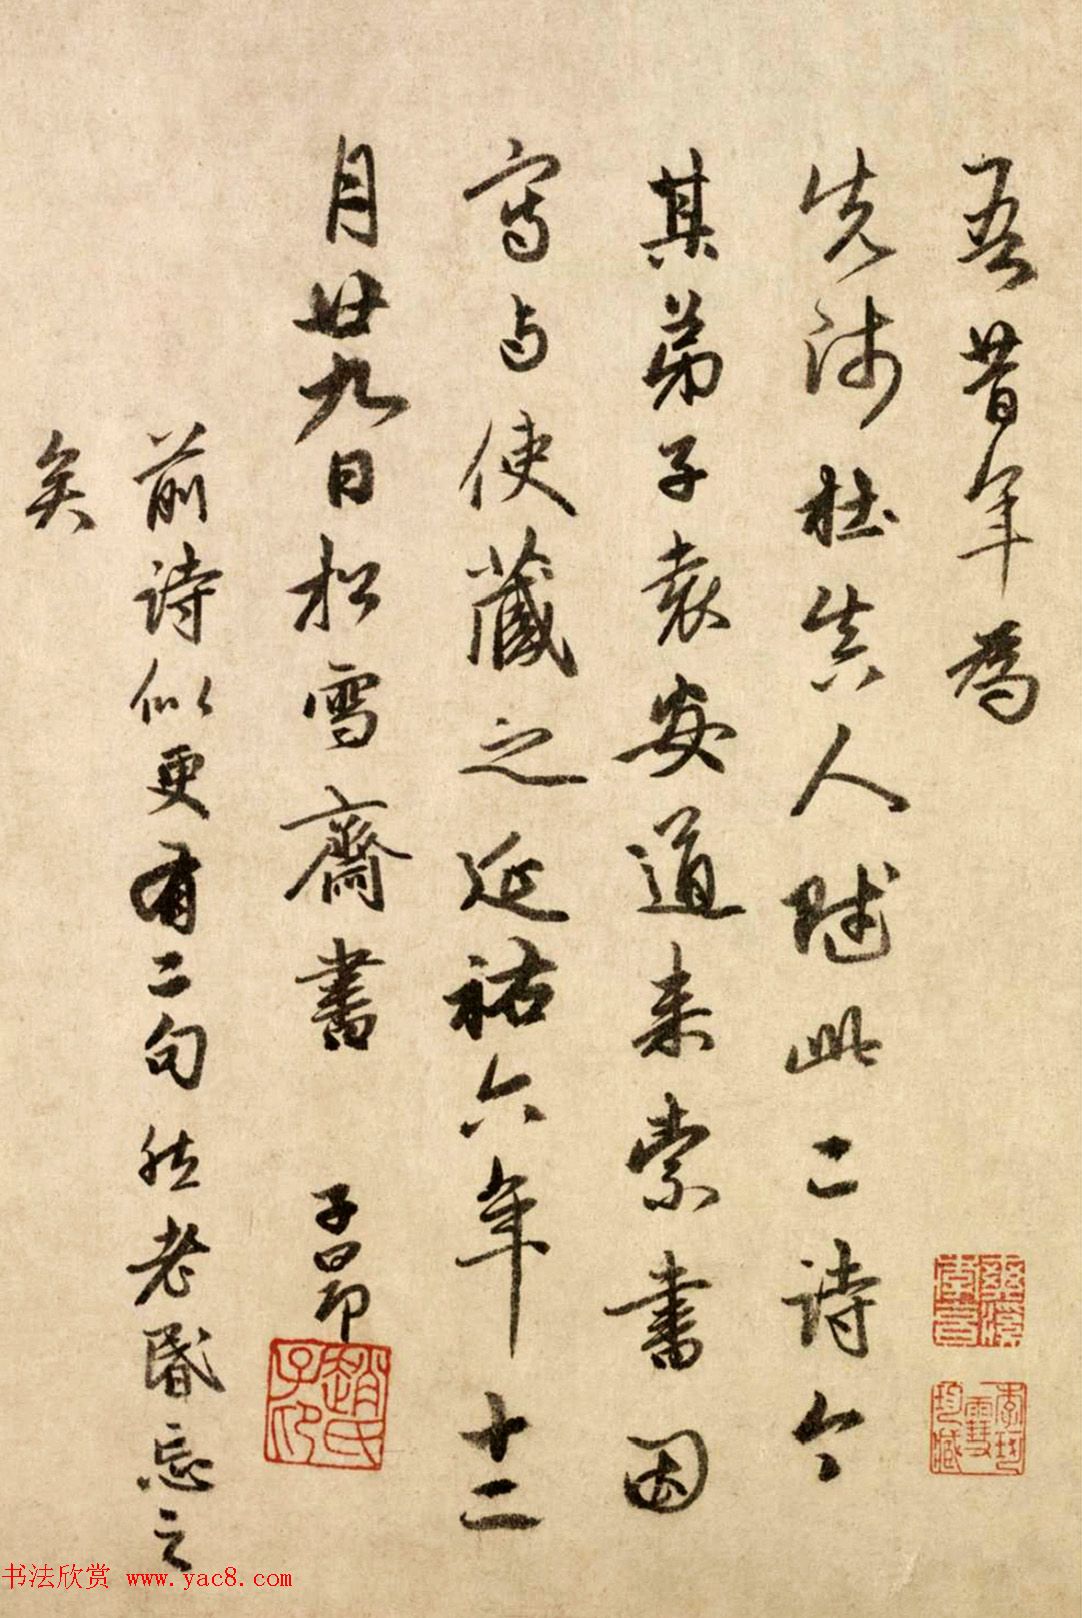 吾昔年爲
先師杜真人賦此二詩今
其弟子袁安道来索書因
寫与使藏之延祐六年十二
月廿九日松雪齋書 子昂
前詩似更有二句然老昏忘之
矣
趙氏子印
书法欣赏 www.yac8.com